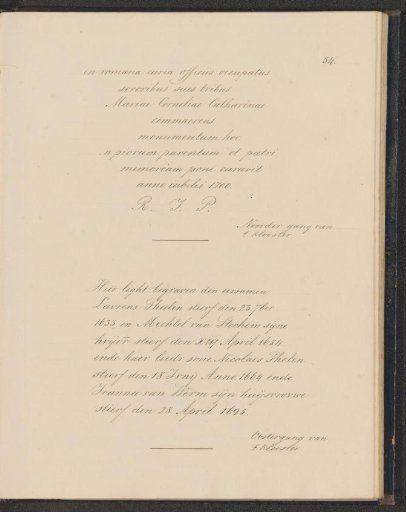 84.
en romana curia officiis occupatus
sororibus suis tribus
Mariae Corneliae Catharinae
commaerens
monumentum hoc
n piorum parentum et patri
memoriam poni curavit
anno iubilei 1700.
R. I. P.
Noorder gang van
t klooster
Hier light begraven den eersamen
Lavrens Thelen stierf den 23 7ber
1633 en Mechtel van Stochem syne
hvijsvr stierf den XIIIJ April 1654
ende haer lieder sone Nicolaes Thelen
stierf den 18 Jvnij Anno 1664 ende
Joanna van Werm sijn huijsvrovwe
stierf den 28 April 1695.
Oostergang van
t klooster